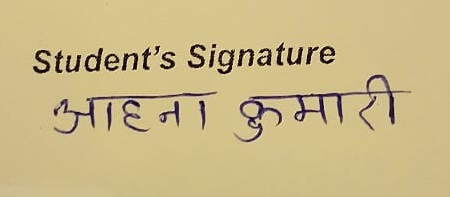 Student's Signature
आहना कुमारी